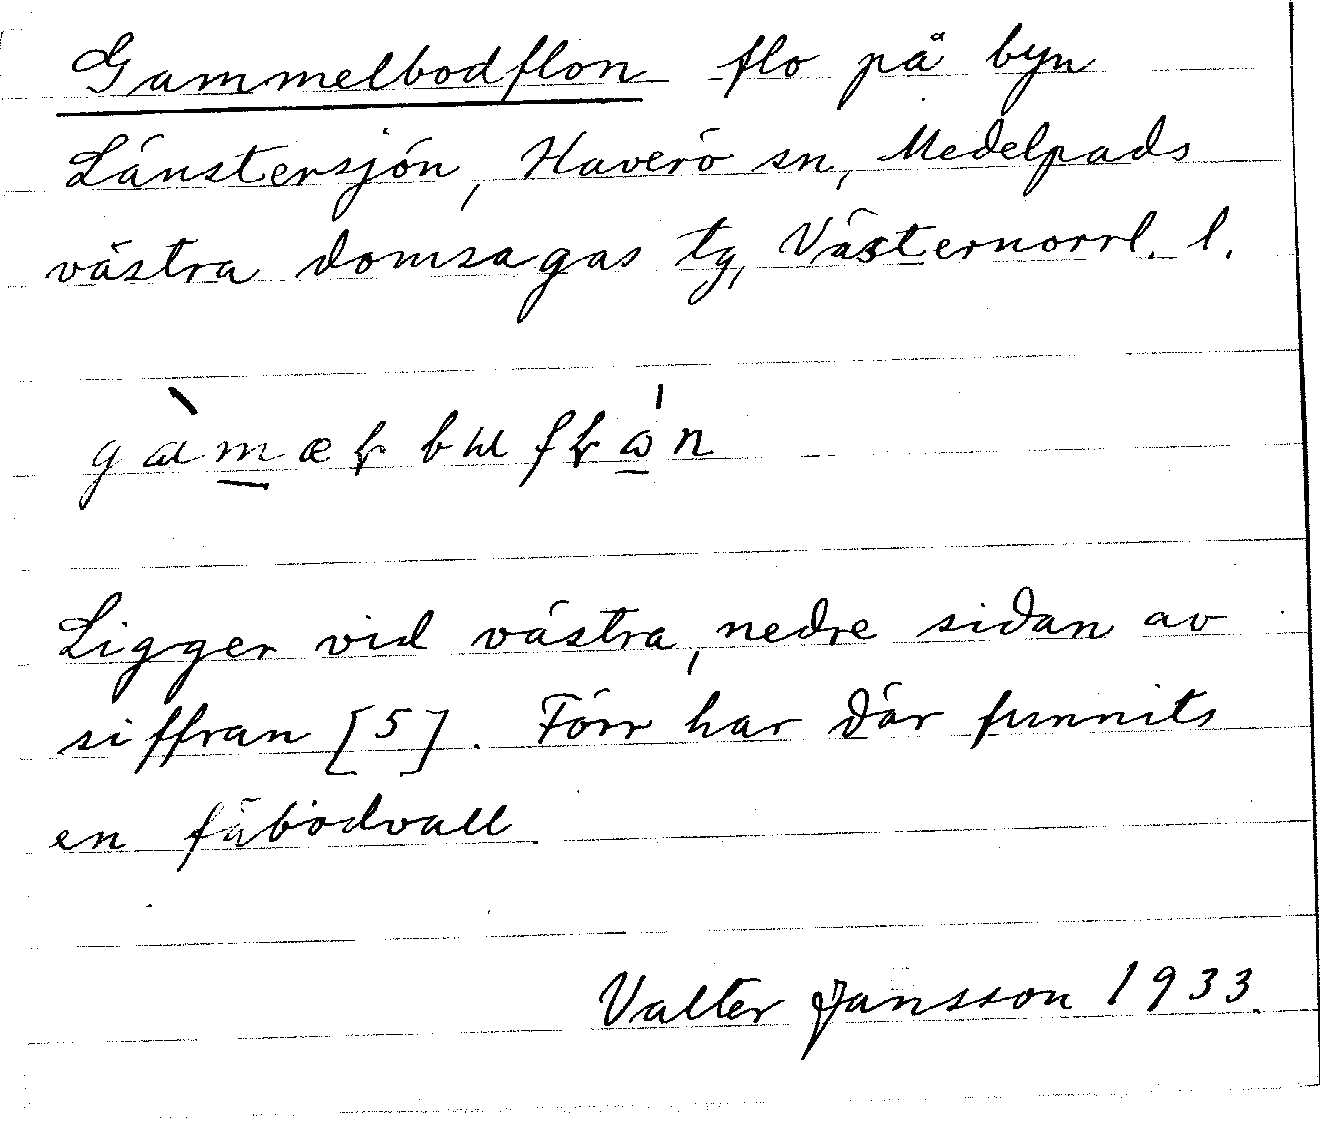 Gammelbodflon flo på byn
Länstersjön, Haverö sn, Medelpads
västra domsagas tg, Västernorrl. l.
Ligger vid västra, nedre sidan av
siffran [5]. Förr har där funnits
en fäbodvall
Valter Jansson 1933.